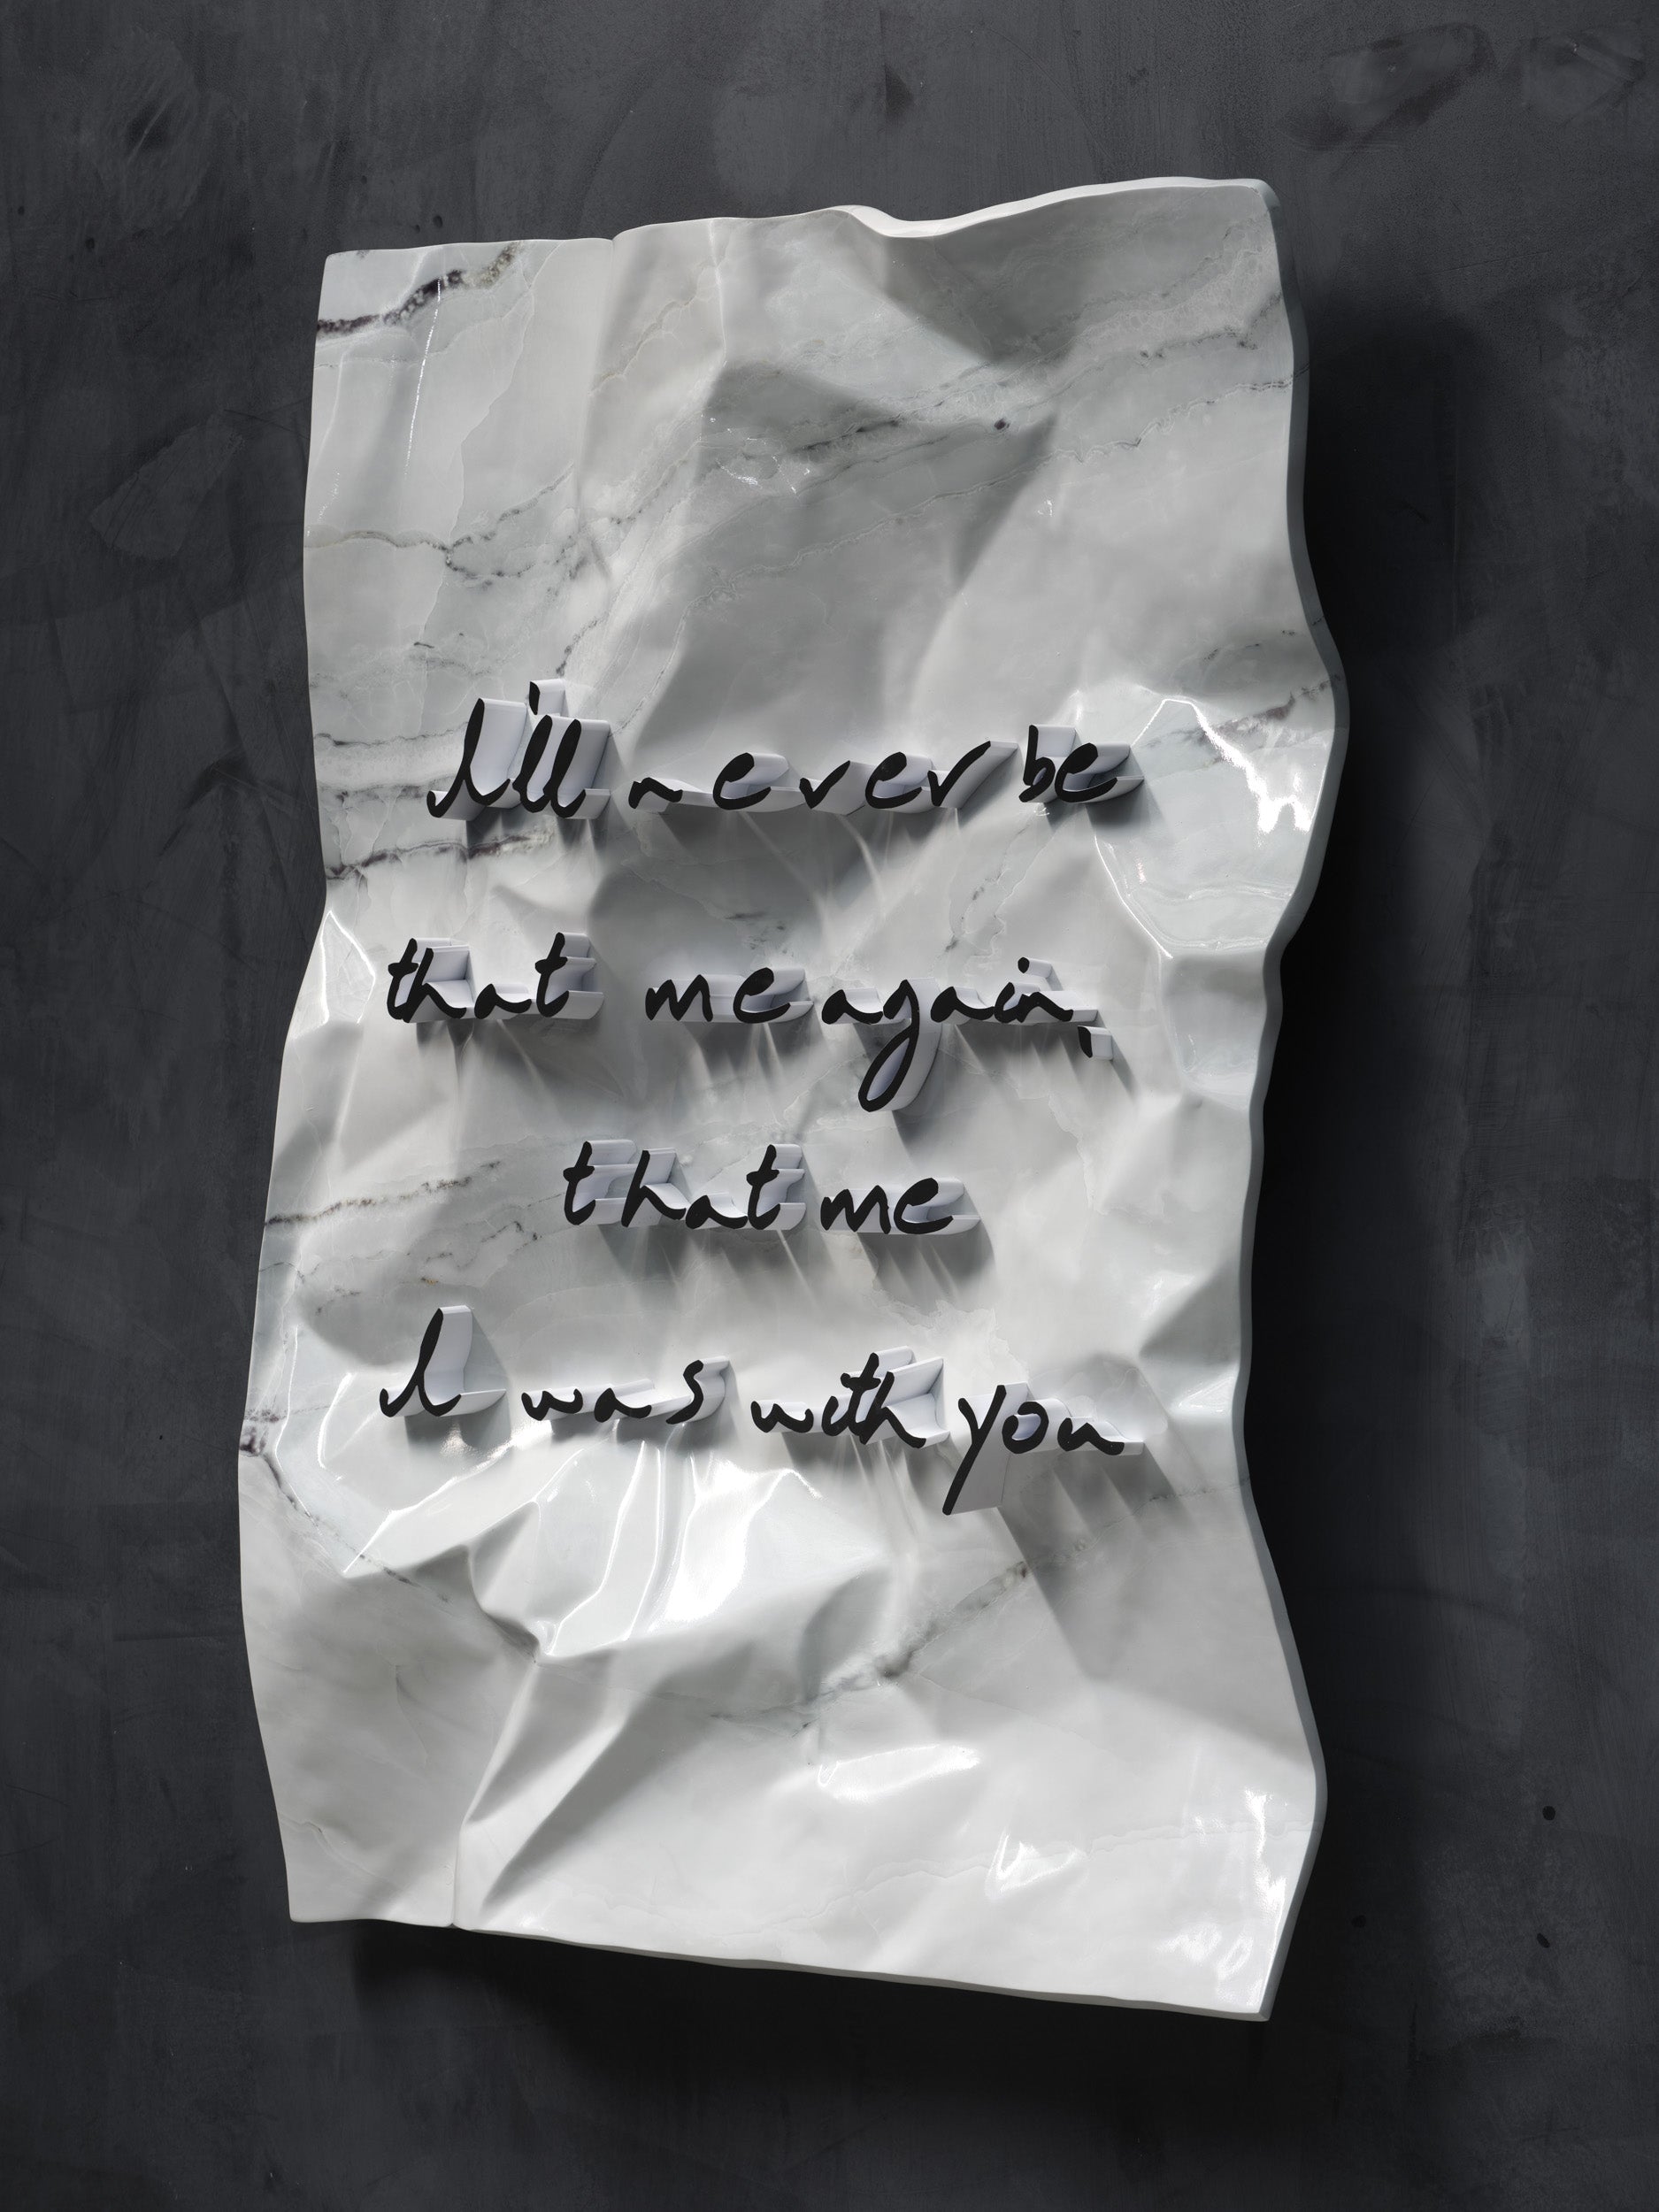 I'll never be
that me again,
that me
I was with you